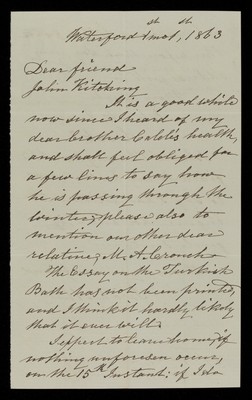 Waterford 1st mo 1th, 1863
Dear friend
John Kitching
It is a good while
now since I heard of my
dear brother Caleb's health,
and shall feel obliged for
a few lines to say how
he is passing through the
winter, please also to
mention our other dear
relative, M. A. Crouch
The Essay on the Turkish
Bath has not been printed,
and I think it hardly likely
that it ever will.
I expect to leave home, if
nothing unforseen occur,
on the 15th Instant: if I do